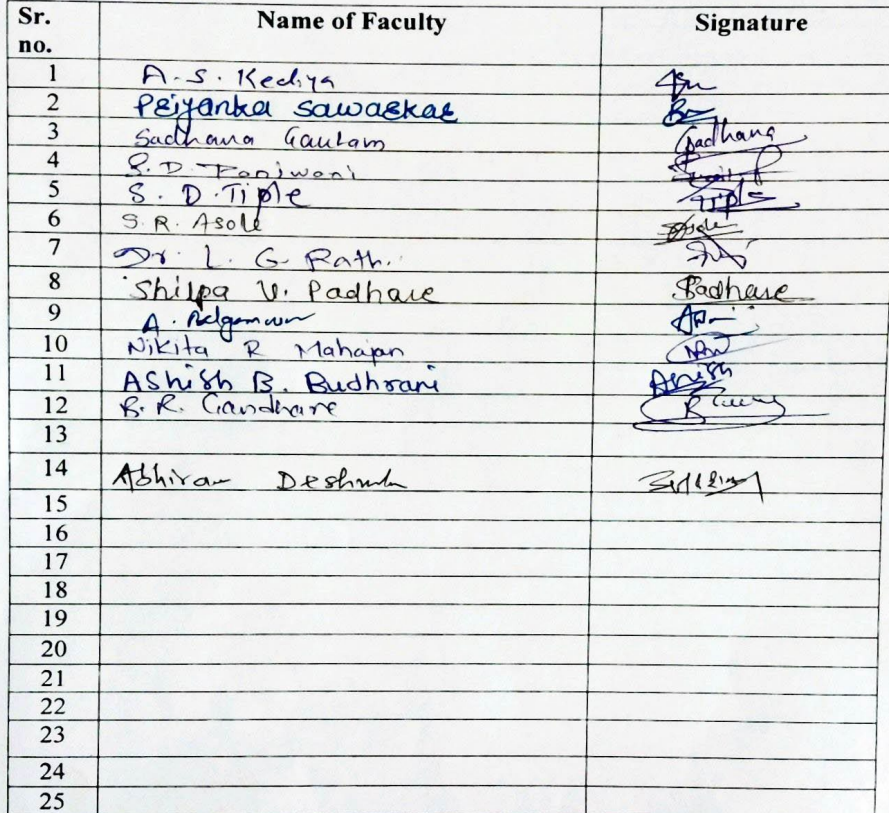 Sr. no. Name of Faculty Signature
1 A.S. Kediya
2 Priyanka Sawarkar
3 Sadhana Gautam Sadhana
4 S. D. Panjwani
5 S. D. Tiple Tiple
6 S. R. Asole Asole
7 Dr. L. G. Rath.
8 Shilpa V. Padhare Padhare
9 A.
10 Nikita R Mahajan
11 Ashish B. Budhrani Ashish
12 B. R. Gandhare
13
14 Abhiram
15
16
17
18
19
20
21
22
23
24
25